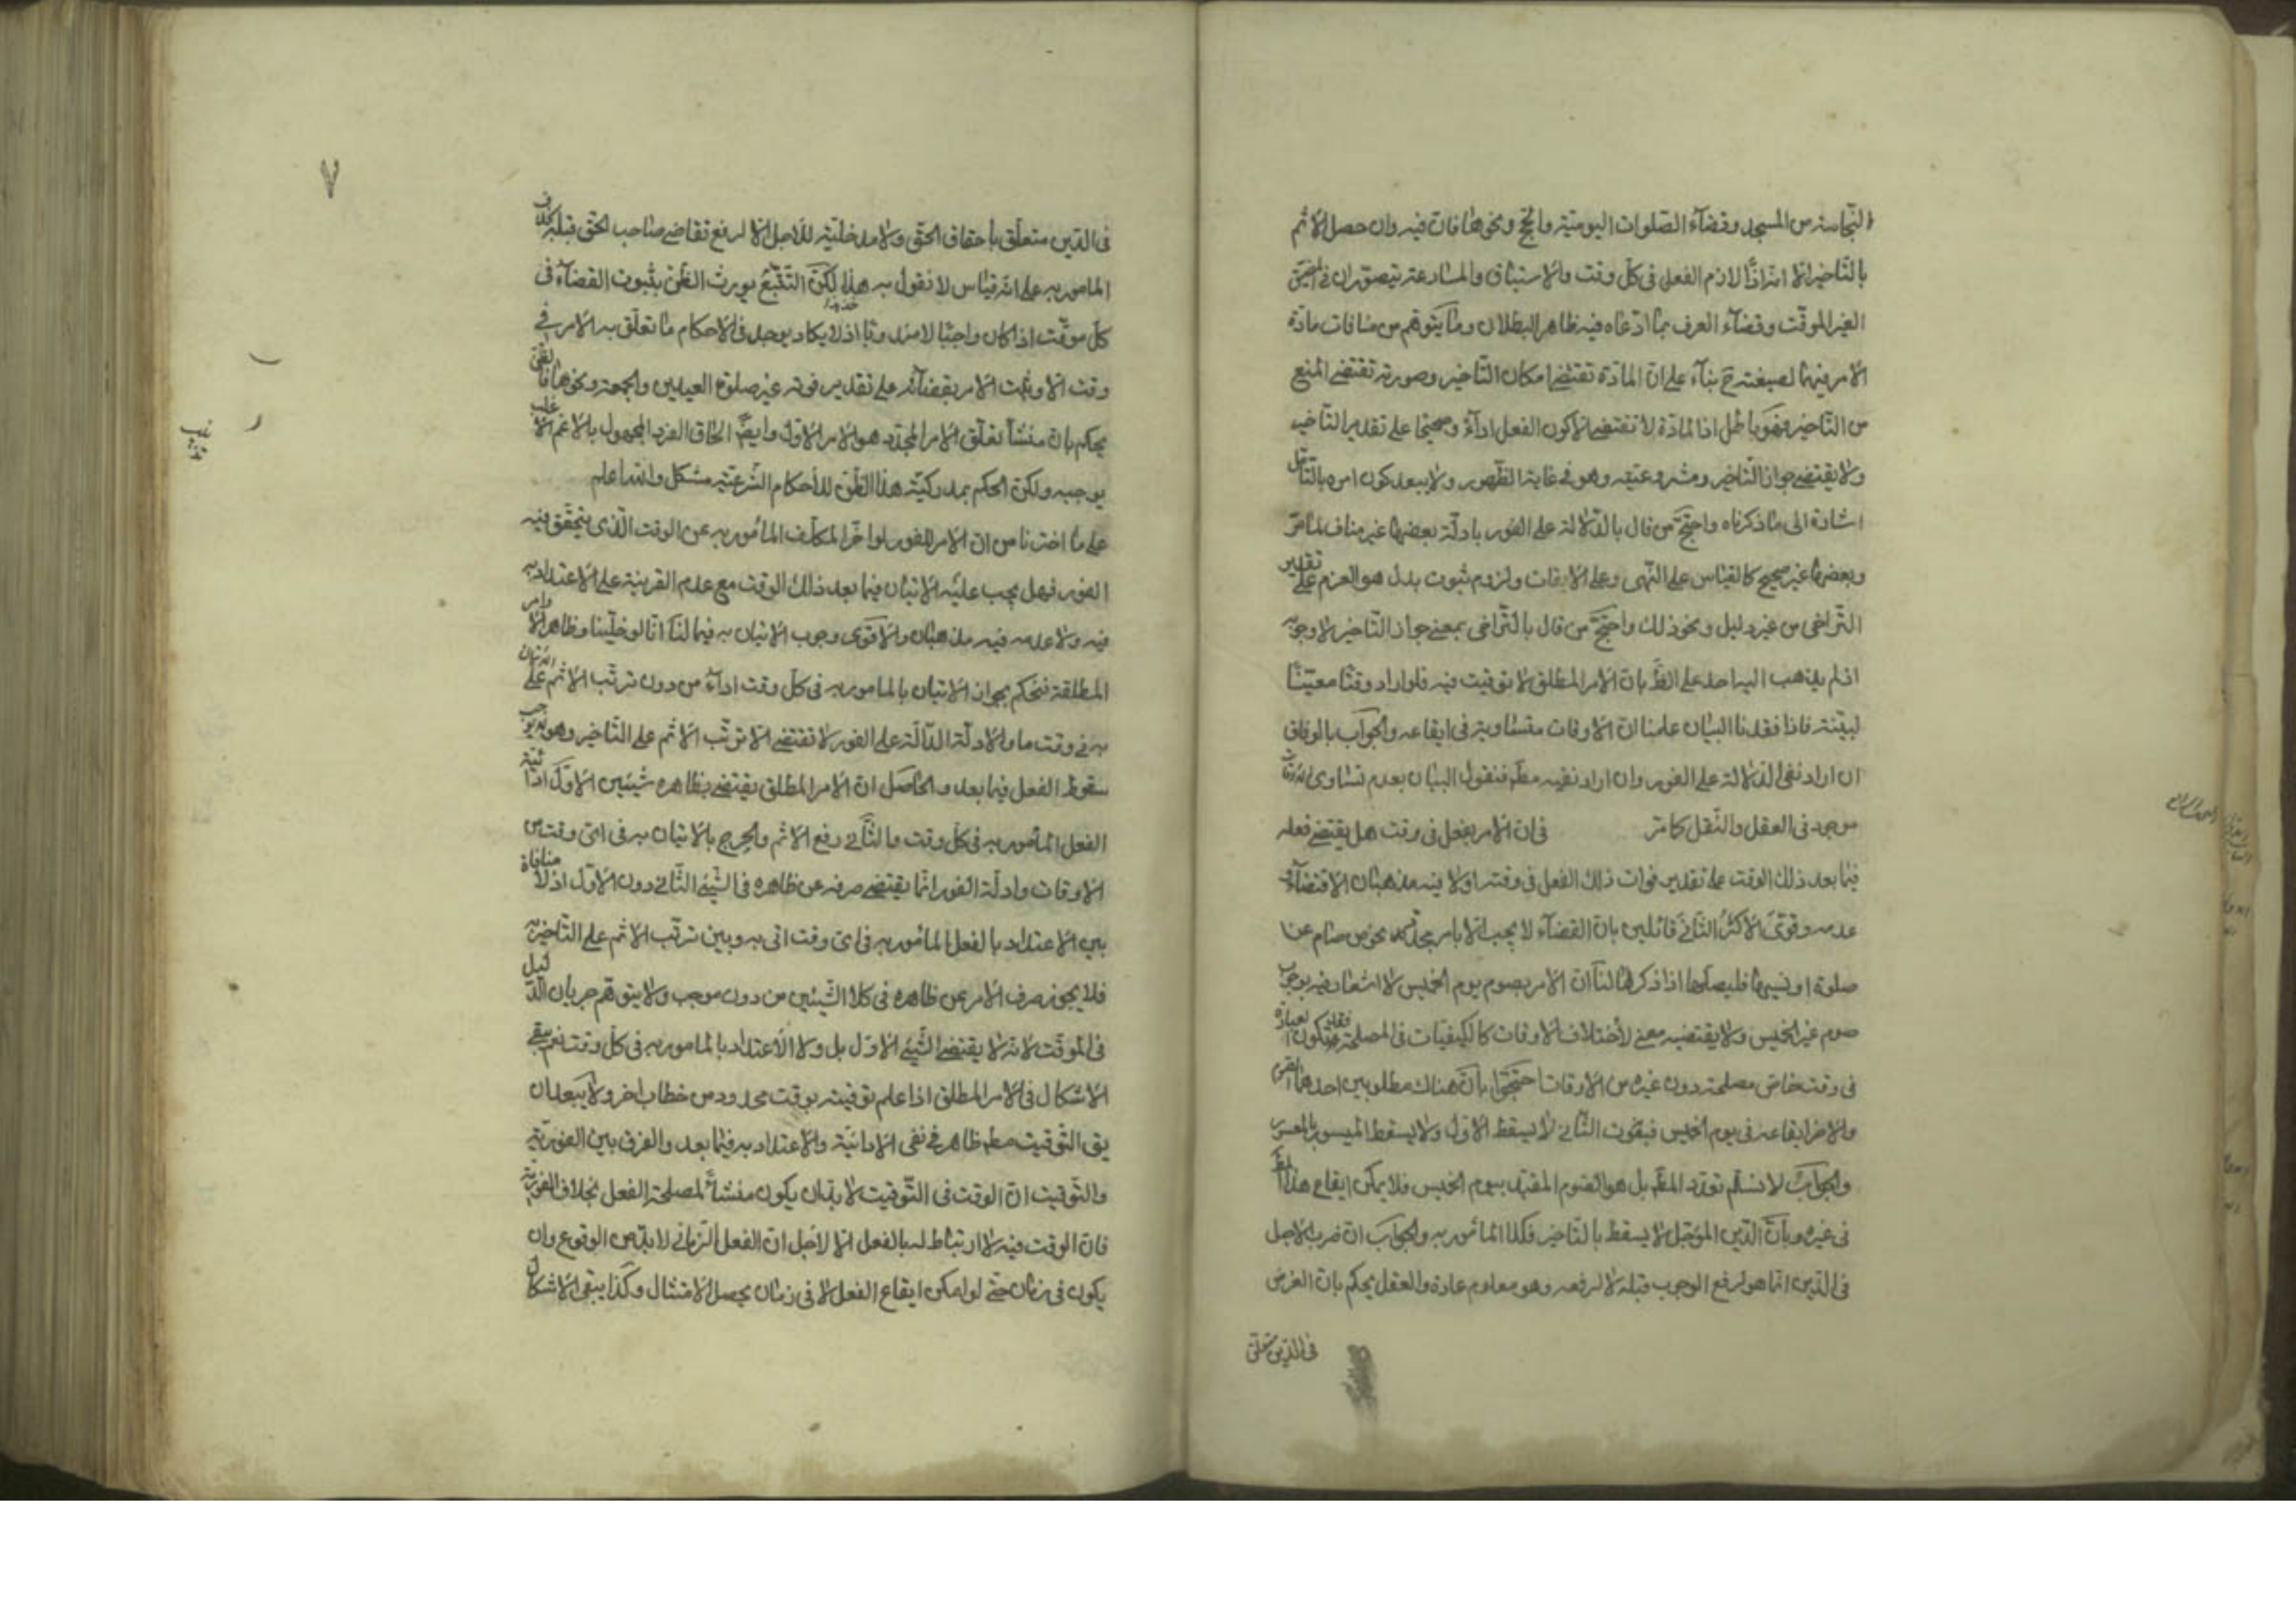 النجاسة من المسجد وقضاء الصلوات اليومية والحج ونحوها فان فيه وان حصل الاثم
بالتاخير الا انه اداء لازم الفعل في كل وقت والاستباق والمسارعة يتصوران في المضيق
الغير الموقت وقضاء العرف بما ادعاه فيه ظاهر البطلان وما يتوهم من منافات مادة
الامر فيهما لصيغته ح بناء على ان المادة تقتضي امكان التاخير وصورته تقتضي المنع
من التاخير فهو باطل اذ المادة لا تقتضي الا كون الفعل اداء وصحيحا على تقدير التاخير
ولا يقتضي جواز التاخير ومشروعيته وهو في غاية الظهور ولا يبعد كون امره بالتامل
اشارة الى ما ذكرناه واحتج من قال بالدلالة على الفور بادلة بعضها غير مناف لما مر
وبعضها غير صحيح كالقياس على النهي وعلى الايقات ولزوم ثبوت بدل هو العزم على تقدير
التراخي من غير دليل ونحو ذلك واحتج من قال بالتراخي بمعنى جواز التاخير لا وجوبه
اذ لم يذهب اليه احد على الظ بان الامر المطلق لا توقيت فيه فلو اراد وقتا معينا
لبينه فاذا فقدنا البيان علمنا ان الاوقات متساوية في ايقاعه والجواب بالوفاق
ان اراد نفي الدلالة على الفور وان اراد نفيه مطم فنقول البيان بعدم تساوي الاوقات
موجود في العقل والنقل كما مر في ان الامر بفعل في وقت هل يقتضي فعله
فيما بعد ذلك الوقت على تقدير فوات ذلك الفعل في وقته اولا فيه مذهبان الاقتضاء و
عدمه وقوى الاكثر الثاني قائلين بان القضاء لا يجب الا بامر مجدد نحو من نام عن
صلوة او نسيها فليصلها اذا ذكرها لنا ان الامر بصوم يوم الخميس لا اشعار فيه بوجوب
صوم غير الخميس ولا يقتضيه معنى لاختلاف الاوقات كالكيفيات في المصلحة فقد يكون لعبادة
في وقت خاص مصلحة دون غيره من الاوقات احتجوا بان هناك مطلوبين احدهما الصوم
والاخر ايقاعه في يوم الخميس فبفوت الثاني لا يسقط الاول ولا يسقط الميسور بالمعسور
والجواب لا نسلم تعدد المط بل هو الصوم المقيد بيوم الخميس فلا يمكن ايقاع هذا المط
في غيره وبان الدين المؤجل لا يسقط بالتاخير فكذا المأمور به والجواب ان ضرب الاجل
في الدين انما هو لرفع الوجوب قبله لا لرفعه وهو معلوم عادة والعقل يحكم بان الغرض
في الدين متعلق
٧
في الدين متعلق باحقاق الحق ولا مدخلية للاجل الا لرفع تقاضي صاحب الحق قبله بخلاف
المامور به على انه قياس لا نقول به هذا لكن التتبع يورث الظن بثبوت القضاء في
كل موقت اذا كان واجبا لا مندوبا اذ لا يكاد يوجد في الاحكام ما تعلق به الامر في
وقت الا وثبت الامر بقضائه على تقدير فوته غير صلوة العيدين والجمعة ونحوها فالظن
يحكم بان منشأ تعلق الامر المجدد هو الامر الاول وايضا الحاق الفرد المجهول بالاعم الاغلب
يوجبه ولكن الحكم بمدركية هذا الظن للاحكام الشرعية مشكل والله اعلم
على ما اخترنا من ان الامر للفور لو اخر المكلف المأمور به عن الوقت الذي يتحقق فيه
الفور فهل يجب عليه الاتيان فيما بعد ذلك الوقت مع عدم القرينة على الاعتداد به
فيه ولا عدمه فيه مذهبان والاقوى وجوب الاتيان به فيما لنا انا لو خلينا وظاهر الاوامر
المطلقة فنحكم بجواز الاتيان بالمامور به في كل وقت اداء من دون ترتب الاثم على الاتيان
به في وقت ما والادلة الدالة على الفور لا تقتضي الا ترتب الاثم على التاخير وهو لا يوجب
سقوط الفعل فيما بعد والحاصل ان الامر المطلق يقتضي بظاهره شيئين الاول ادائية
الفعل المأمور به في كل وقت والثاني رفع الاثم والحرج بالاتيان به في اي وقت من
الاوقات وادلة الفور انما يقتضي صرفه عن ظاهره في الشيء الثاني دون الاول اذ لا منافاة
بين الاعتداد بالفعل المأمور به في اي وقت اتى به وبين ترتب الاثم على التاخير به
فلا يجوز صرف الامر عن ظاهره في كلا الشيئين من دون موجب ولا يتوهم جريان الدليل
في الموقت لانه لا يقتضي الشيء الاول بل ولا الاعتداد بالمامور به في كل وقت نعم يبقى
الاشكال في الامر المطلق اذا علم توقيته بوقت محدود من خطاب اخر ولا يبعد ان
يق التوقيت مطم ظاهر في نفي الادائية والاعتداد به فيما بعد والفرق بين الفورية
والتوقيت ان الوقت في التوقيت لا بد ان يكون منشأ لمصلحة الفعل بخلاف الفورية
فان الوقت فيه لا ارتباط له بالفعل الا لاجل ان الفعل الزماني لا بد من الوقوع وان
يكون في زمان حتى لو امكن ايقاع الفعل لا في زمان يحصل الامتثال وكذا يبقى الاشكال